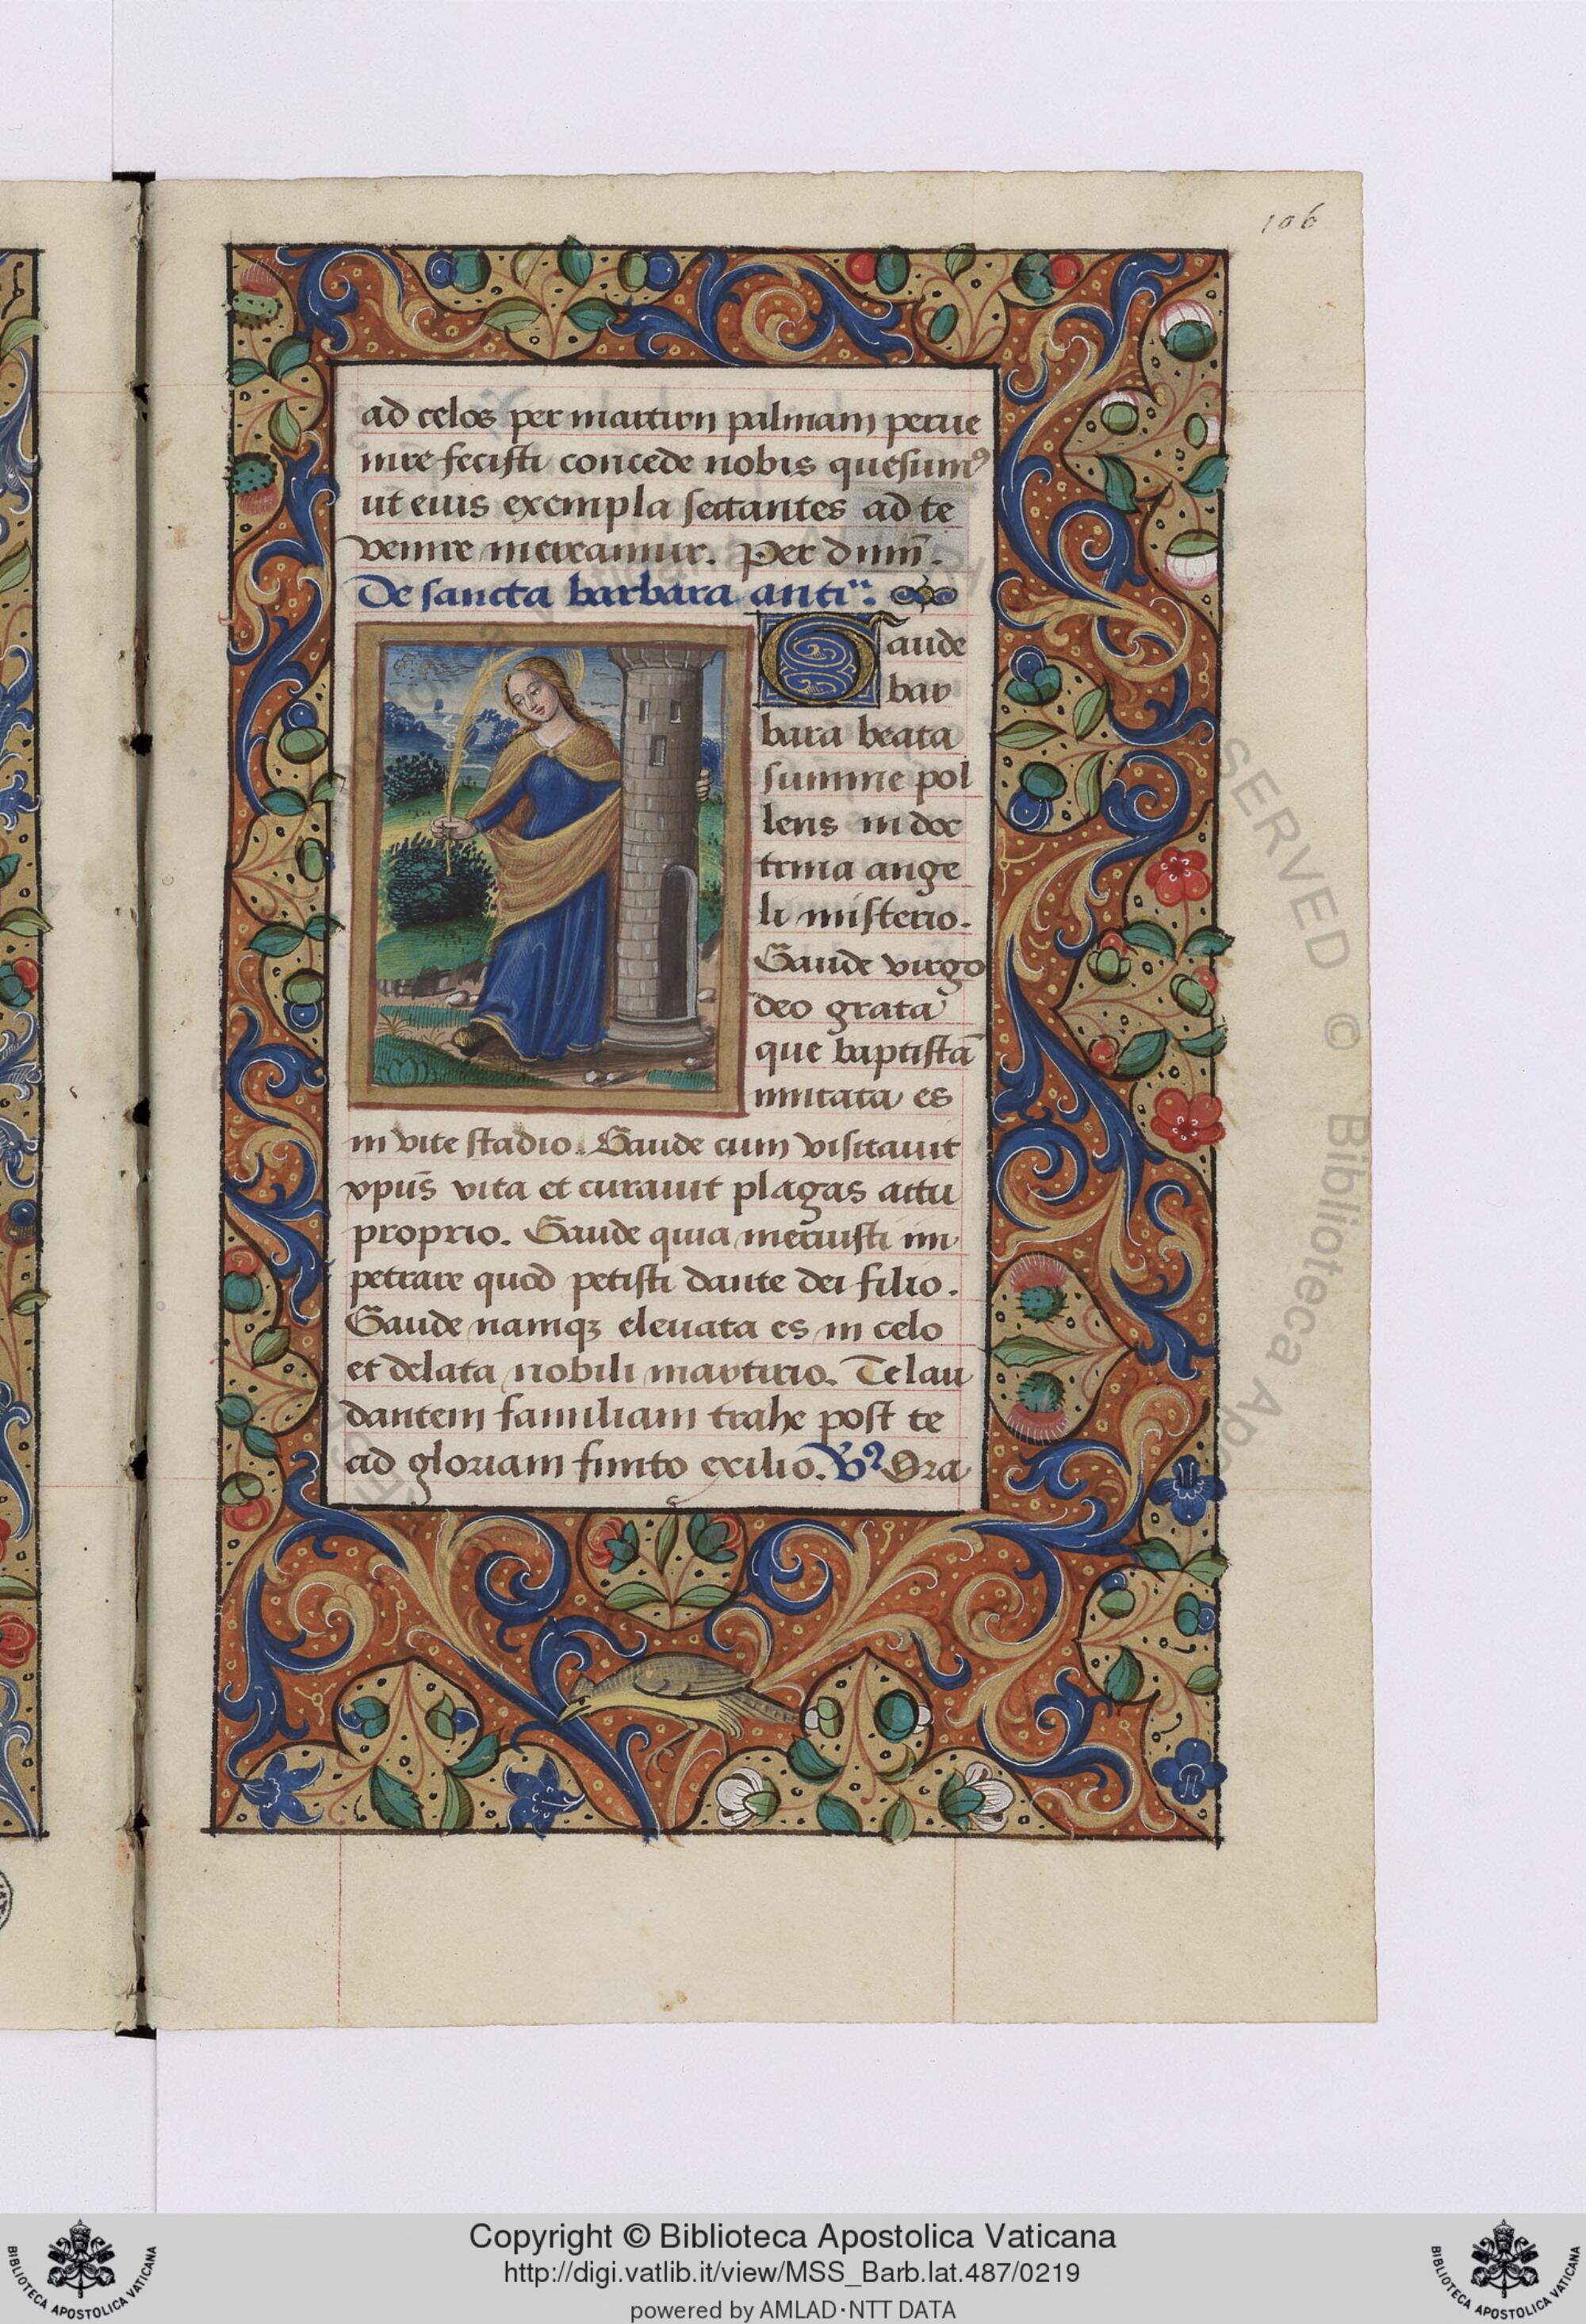 106
ad celos per martirii palmam perue
nire fecisti concede nobis quesumꝰ
ut eius exempla sectantes ad te
venire mereamur. Per dnm̄.
De sancta barbara anti
Gaude
bar
bara beata
summe pol
lens in doc
trina ange
li misterio.
Gaude virgo
deo grata
que baptistā
imitata es
in vite stadio. Gaude cum visitauit
xpūs vita et curauit plagas actu
proprio. Gaude quia meruisti im
petrare quod petisti dante dei filio.
Gaude namqꝫ eleuata es in celo
et delata nobili martirio. Te lau
dantem familiam trahe post te
ad gloriam finito exilio. Ora
SERVED © Biblioteca Apo
Copyright © Biblioteca Apostolica Vaticana
http://digi.vatlib.it/view/MSS_Barb.lat.487/0219
powered by AMLAD·NTT DATA
BIBLIOTECA APOSTOLICA VATICANA
BIBLIOTECA APOSTOLICA VATICANA